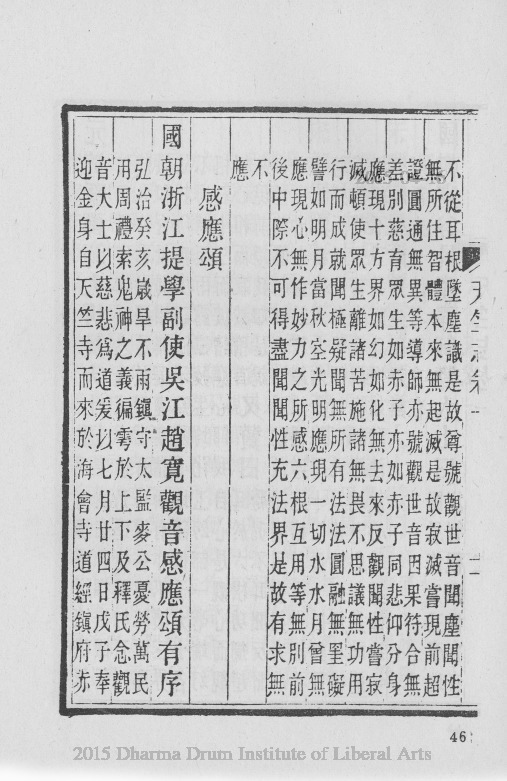 不從耳根墜塵識是故尊號觀世音聞塵聞性
無所住智體本來無起滅是故寂滅當現前超
證圓通無異等導師亦號觀世音因果符合無
差別慈育眾生如赤子亦如赤子同悲仰分身
應現十方界如幻如化無去來反觀聞性嘗寂
滅頓使眾生離諸苦施諸無畏不思議無功用
行而成就聞極疑聞無所有法法圓融無罣礙
譬如明月當秋空光明應現一切水水月曾無
應現心無作妙力之所感六根互用等無別前
後中際不可得盡聞聞性充法界是故有求無
不
應
感應頌
國朝浙江提學副使吳江趙寬觀音感應頌有序
弘治癸亥歲旱不雨鎮守太監麥公憂勞萬民
用周禮索鬼神之義徧雩於上下及釋氏念觀
音大士以慈悲爲道爰以七月廿四日戊子奉
迎金身自天竺寺而來於海會寺道經鎮府赤
46
2015 Dharma Drum Institute of Liberal Arts